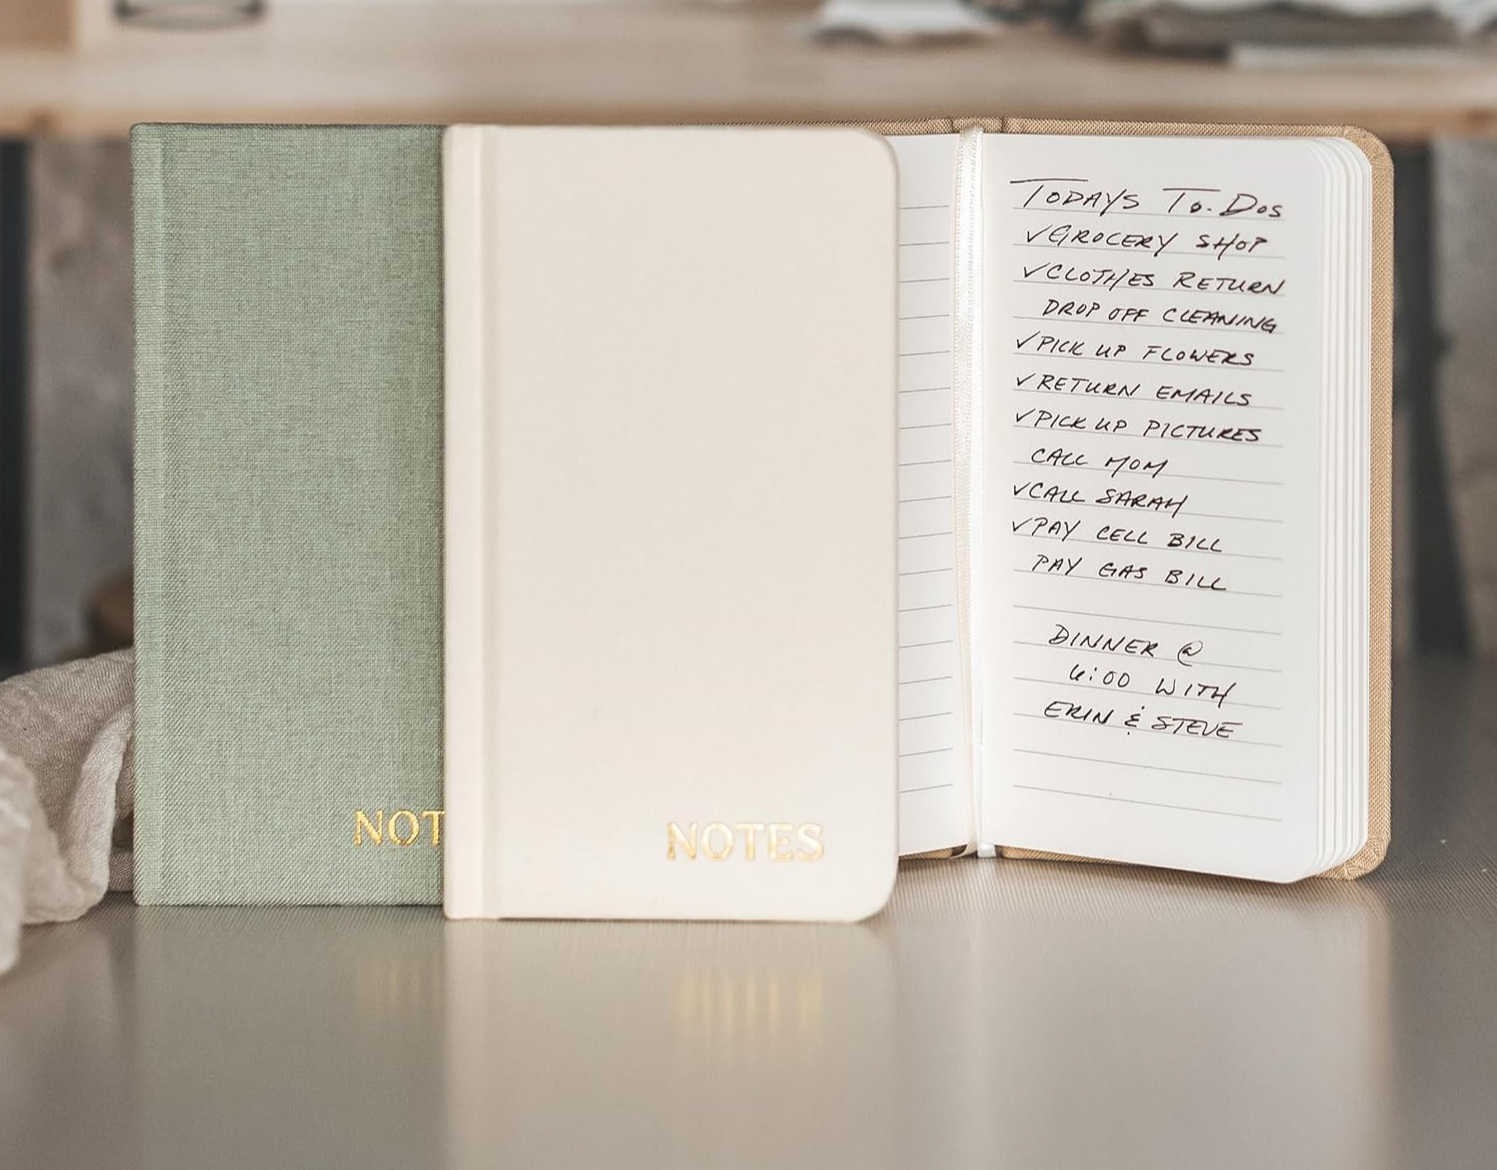 TODAYS TO.DOS
✓GROCERY SHOP
✓CLOTHES RETURN
DROP OFF CLEANING
✓PICK UP FLOWERS
✓RETURN EMAILS
✓PICK UP PICTURES
CALL MOM
✓CALL SARAH
✓PAY CELL BILL
PAY GAS BILL
DINNER @
6:00 WITH
ERIN & STEVE
NOT
NOTES